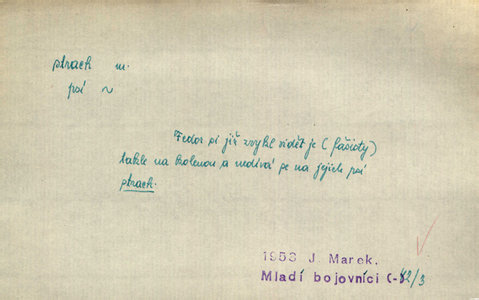 strach m.
psí ~
Fedor si již zvykl vidět je (fašisty)
takhle na kolenou a nedívá se na jejich psí
strach.
1953 J. Marek.
Mladí bojovníci (-) 42/3